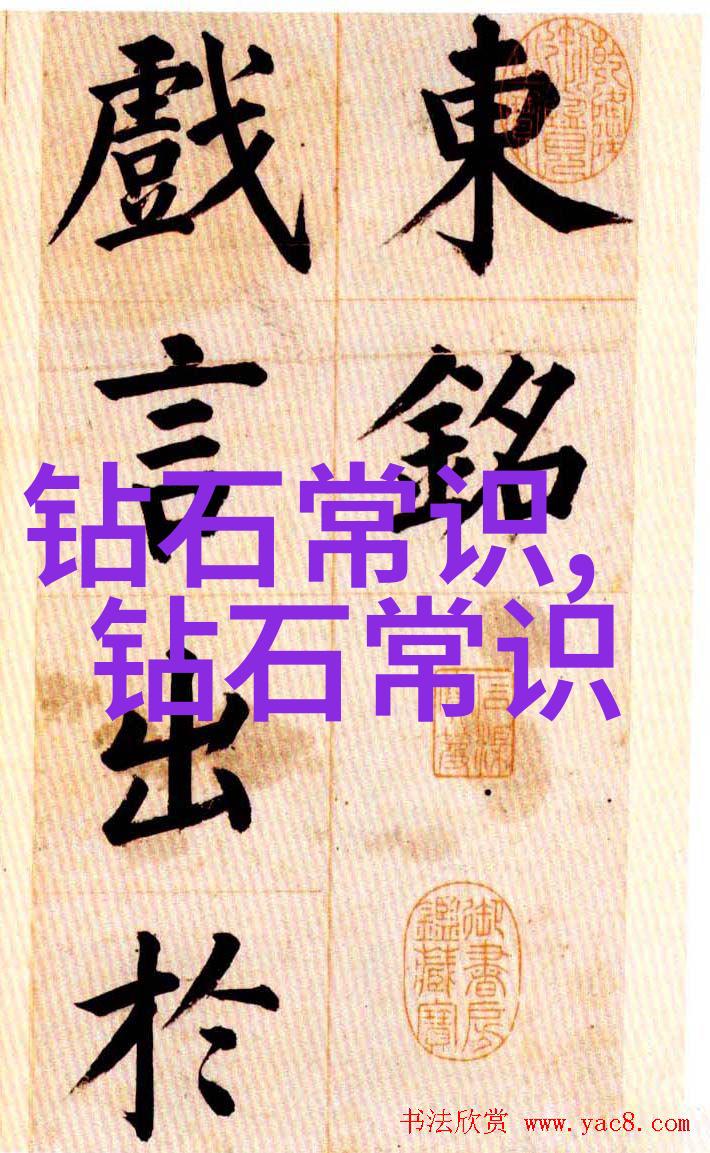 東銘
戲言出於
钻石常识,
钻石常识
御書房
鑑藏寶
书法欣赏 www.yac8.com